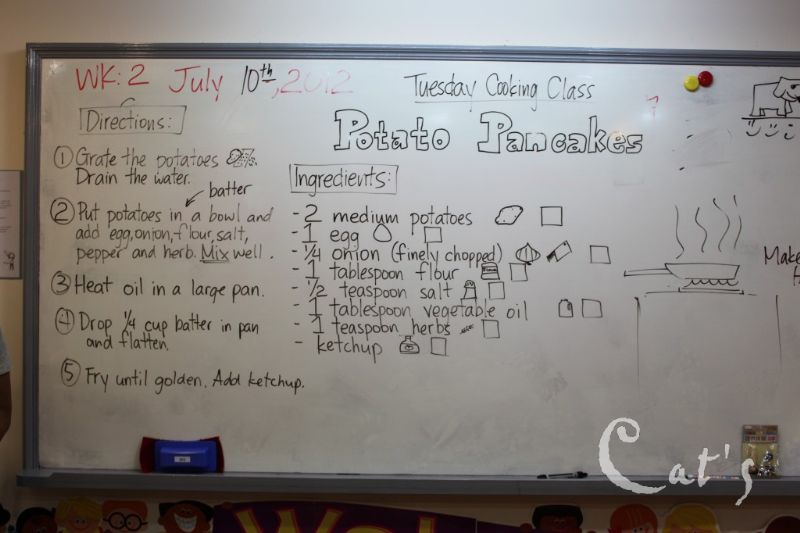 WK: 2 July 10th, 2012
Tuesday Cooking Class
Potato Pancakes
Directions:
① Grate the potatoes
Drain the water.
batter
② Put potatoes in a bowl and
add egg, onion, flour, salt,
pepper and herb. Mix well.
③ Heat oil in a large pan.
④ Drop ¼ cup batter in pan
and flatten.
⑤ Fry until golden. Add ketchup.
Ingredients:
- 2 medium potatoes
- 1 egg
- ¼ onion (finely chopped)
- 1 tablespoon flour
- ½ teaspoon salt
- 1 tablespoon vegetable oil
- 1 teaspoon herbs
- ketchup
Make
Cat's